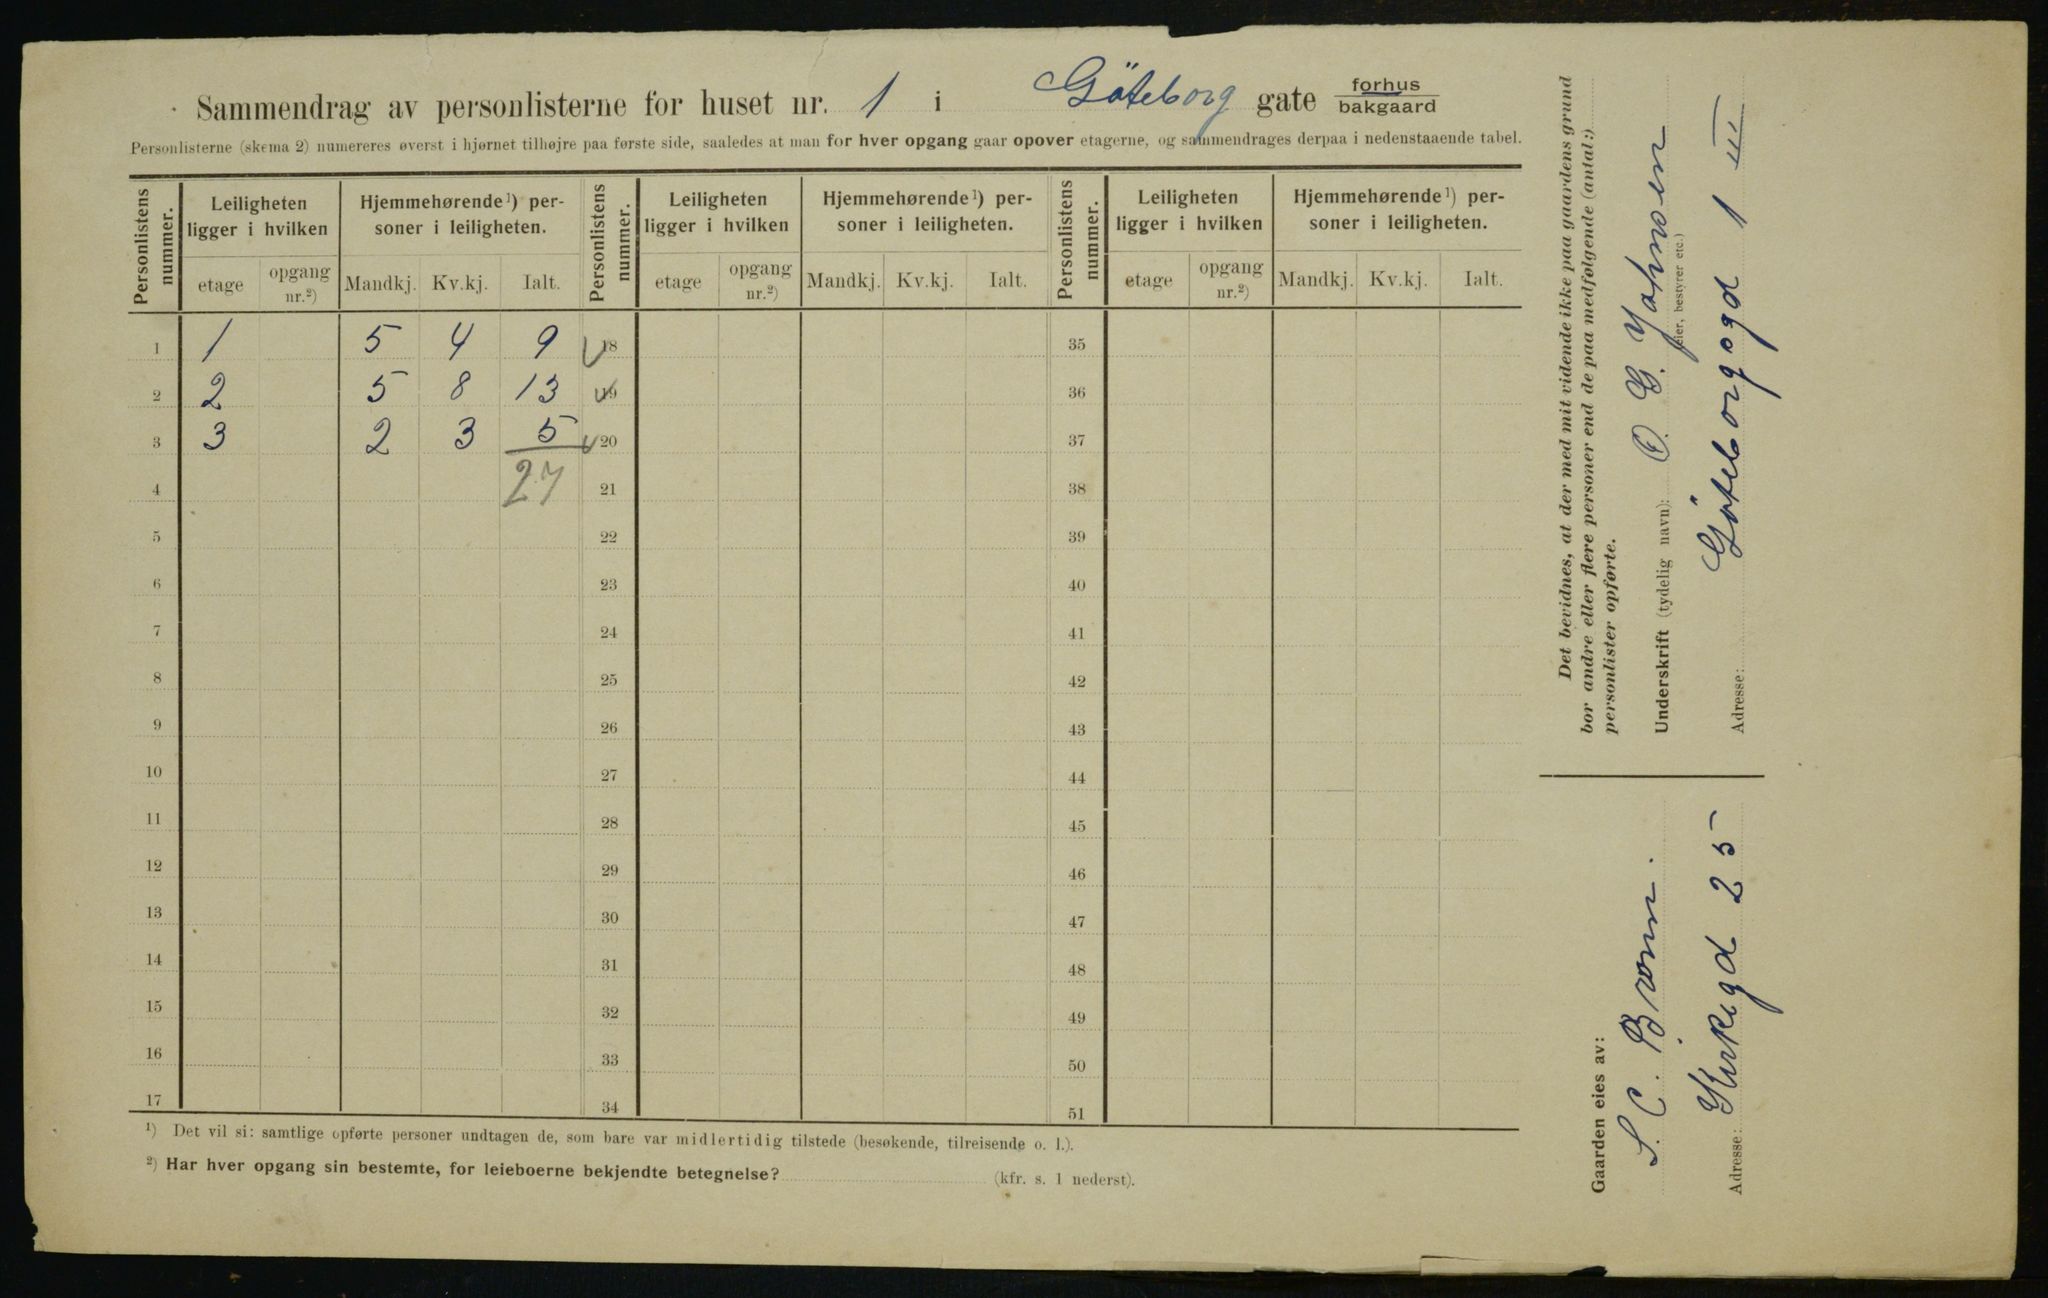 Sammendrag av personlisterne for huset nr. 1 i Göteborg gate forhus
bakgaard
Personlisterne (skema 2) numereres øverst i hjørnet tilhøjre paa første side, saaledes at man for hver opgang gaar opover etagerne, og sammendrages derpaa i nedenstaaende tabel.
Personlistens nummer. Leiligheten ligger i hvilken Hjemmehørende¹) personer i leiligheten. Personlistens nummer. Leiligheten ligger i hvilken Hjemmehørende¹) personer i leiligheten. Personlistens nummer. Leiligheten ligger i hvilken Hjemmehørende¹) personer i leiligheten.
etage opgang nr.²) Mandkj. Kv.kj. Ialt. etage opgang nr.²) Mandkj. Kv.kj. Ialt. etage opgang nr.²) Mandkj. Kv.kj. Ialt.
1 1 5 4 9 18 35
2 2 5 8 13 19 36
3 3 2 3 5 20 37
4 27 21 38
5 22 39
6 23 40
7 24 41
8 25 42
9 26 43
10 27 44
11 28 45
12 29 46
13 30 47
14 31 48
15 32 49
16 33 50
17 34 51
¹) Det vil si: samtlige opførte personer undtagen de, som bare var midlertidig tilstede (besøkende, tilreisende o. l.).
²) Har hver opgang sin bestemte, for leieboerne bekjendte betegnelse? (kfr. s. 1 nederst).
Det bevidnes, at der med mit vidende ikke paa gaardens grund
bor andre eller flere personer end de paa medfølgende (antal:)
personlister opførte.
Underskrift (tydelig navn): O. G. Johnsen
(eier, bestyrer etc.)
Adresse: Göteborggd 1 III
Gaarden eies av:
S. C. Bromn.
Adresse: Kirkegd 25